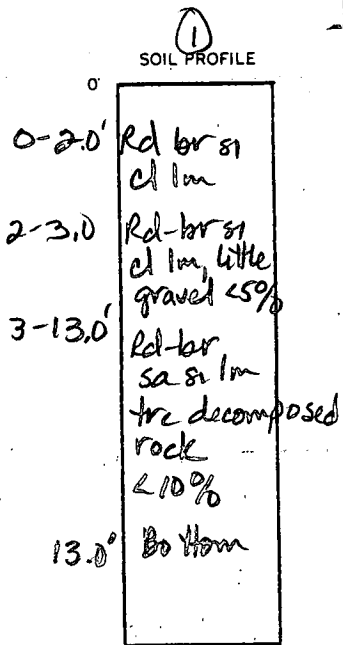 1
SOIL PROFILE
0
0-2.0' Rd br si
cl lm
2-3.0 Rd-br si
cl lm, little
gravel <5%
3-13.0' Rd-br
sa si lm
trc decomposed
rock
<10%
13.0' Bottom